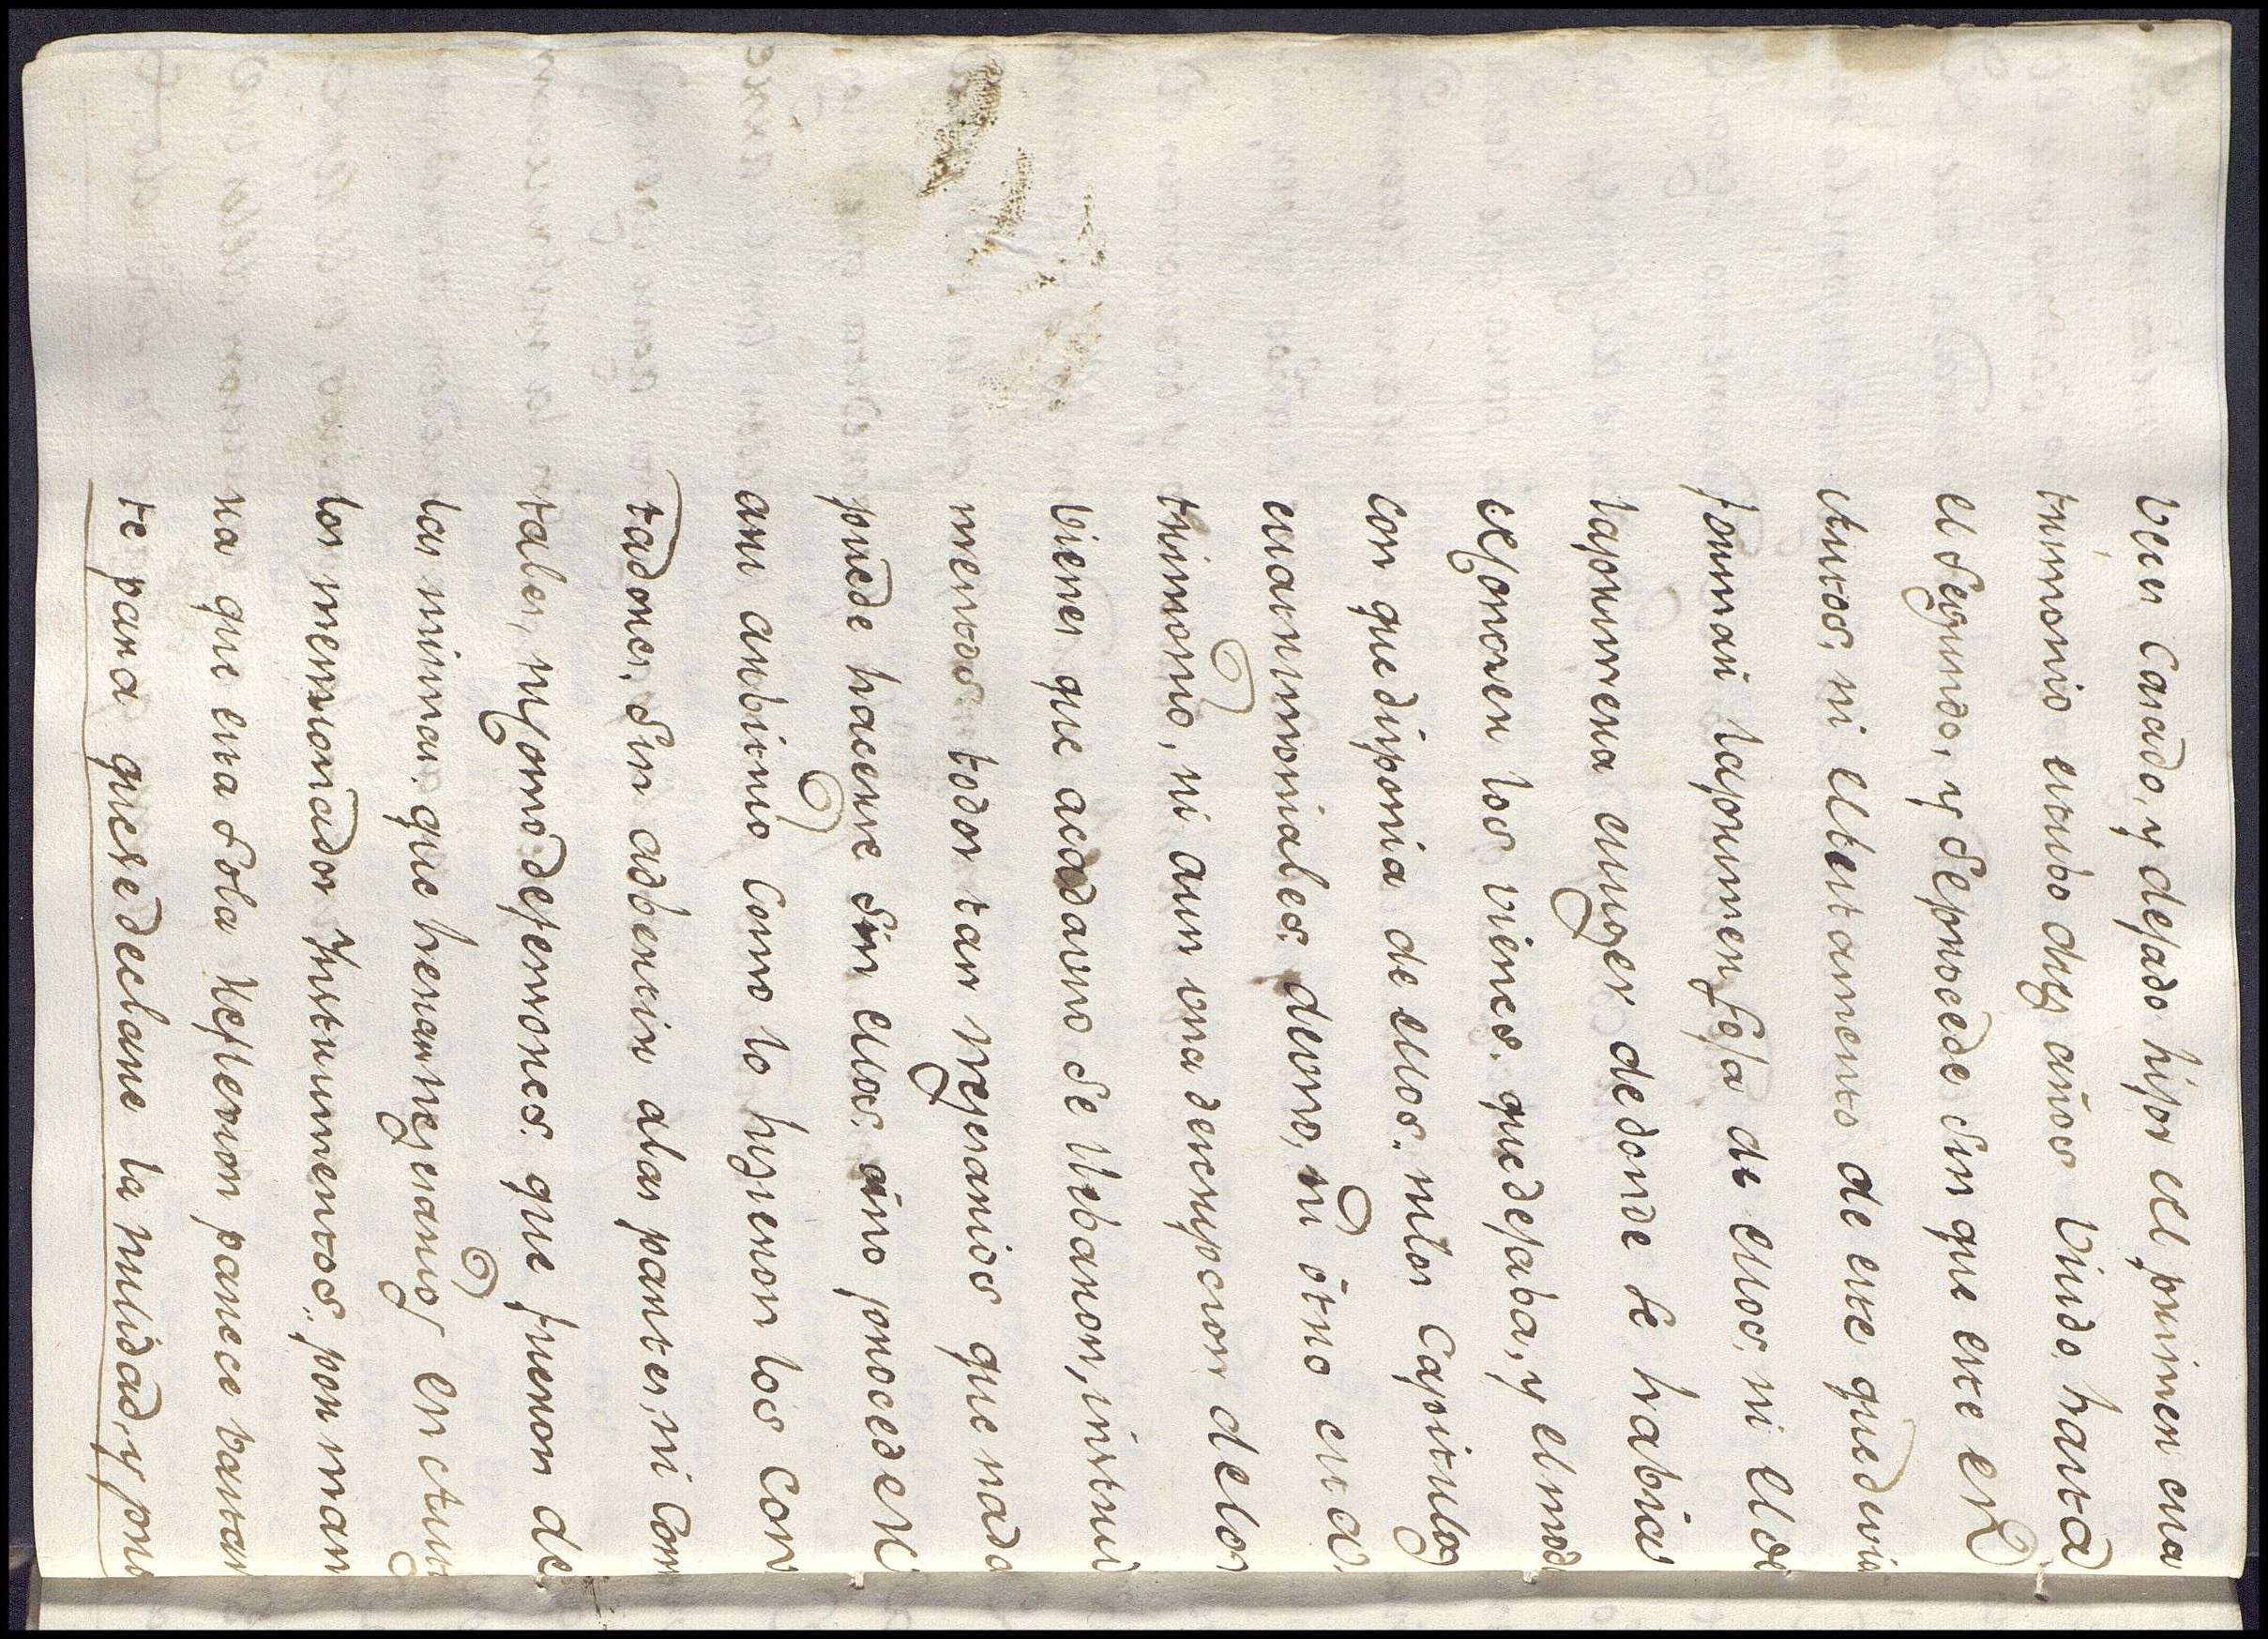 veces casado, y dejado hijos del primer ma
trimonio estubo diez años viudo, hasta
el segundo, y se procede sin que este es
chritos, ni el testamento de este que devia
formar la primera foja de ellos, ni el de
la primera muger de donde se habrian
de sacar los vienes que dejaba, y el modo
con que disponia de ellos, ni los capitulos
matrimoniales de uno, ni otro ma
trimonio, ni aun una descripcion de los
vienes que acada uno se llebaron, instru
mentos todos tan necesarios que nada
puede hacerse sin ellos, sino proceder
a un arbitrio como lo hizieron los con
tadores, sin adbertir a las partes, ni como
tales, ni como defensores que fueron de
las mismas, que heran necesarios en autos
los mencionados Instrumentos, por man
ra que esta sola reflexion parece bastan
te para que se declare la nulidad, y pro